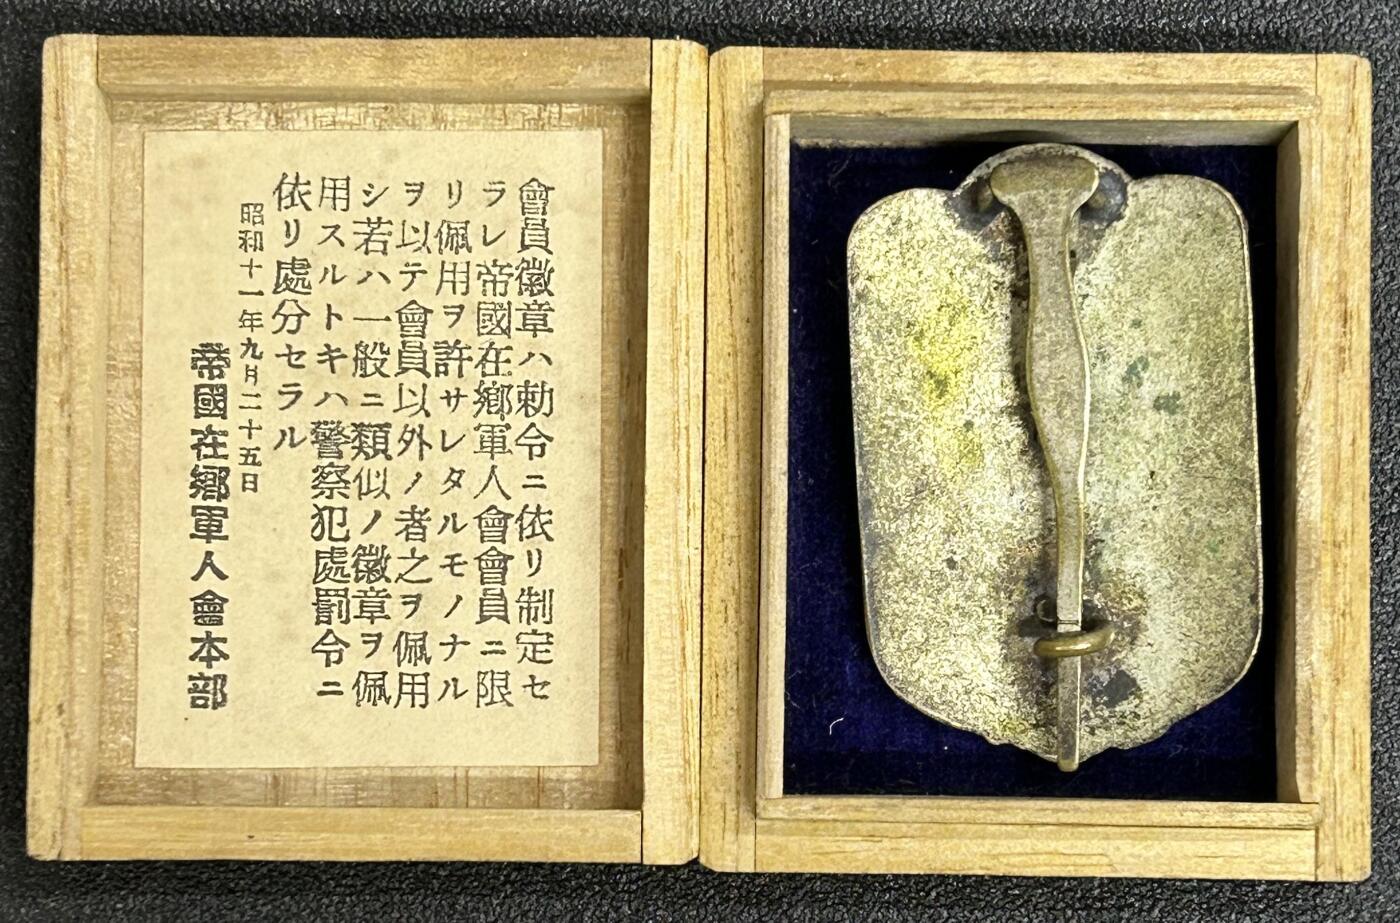 會員徽章ハ勅令ニ依リ制定セ
ラレ帝國在鄉軍人會會員ニ限
リ佩用ヲ許サレタルモノナル
ヲ以テ會員以外ノ者之ヲ佩用
シ若ハ一般ニ類似ノ徽章ヲ佩
用スルトキハ警察犯處罰令ニ
依リ處分セラル
昭和十一年九月二十五日
帝國在鄉軍人會本部